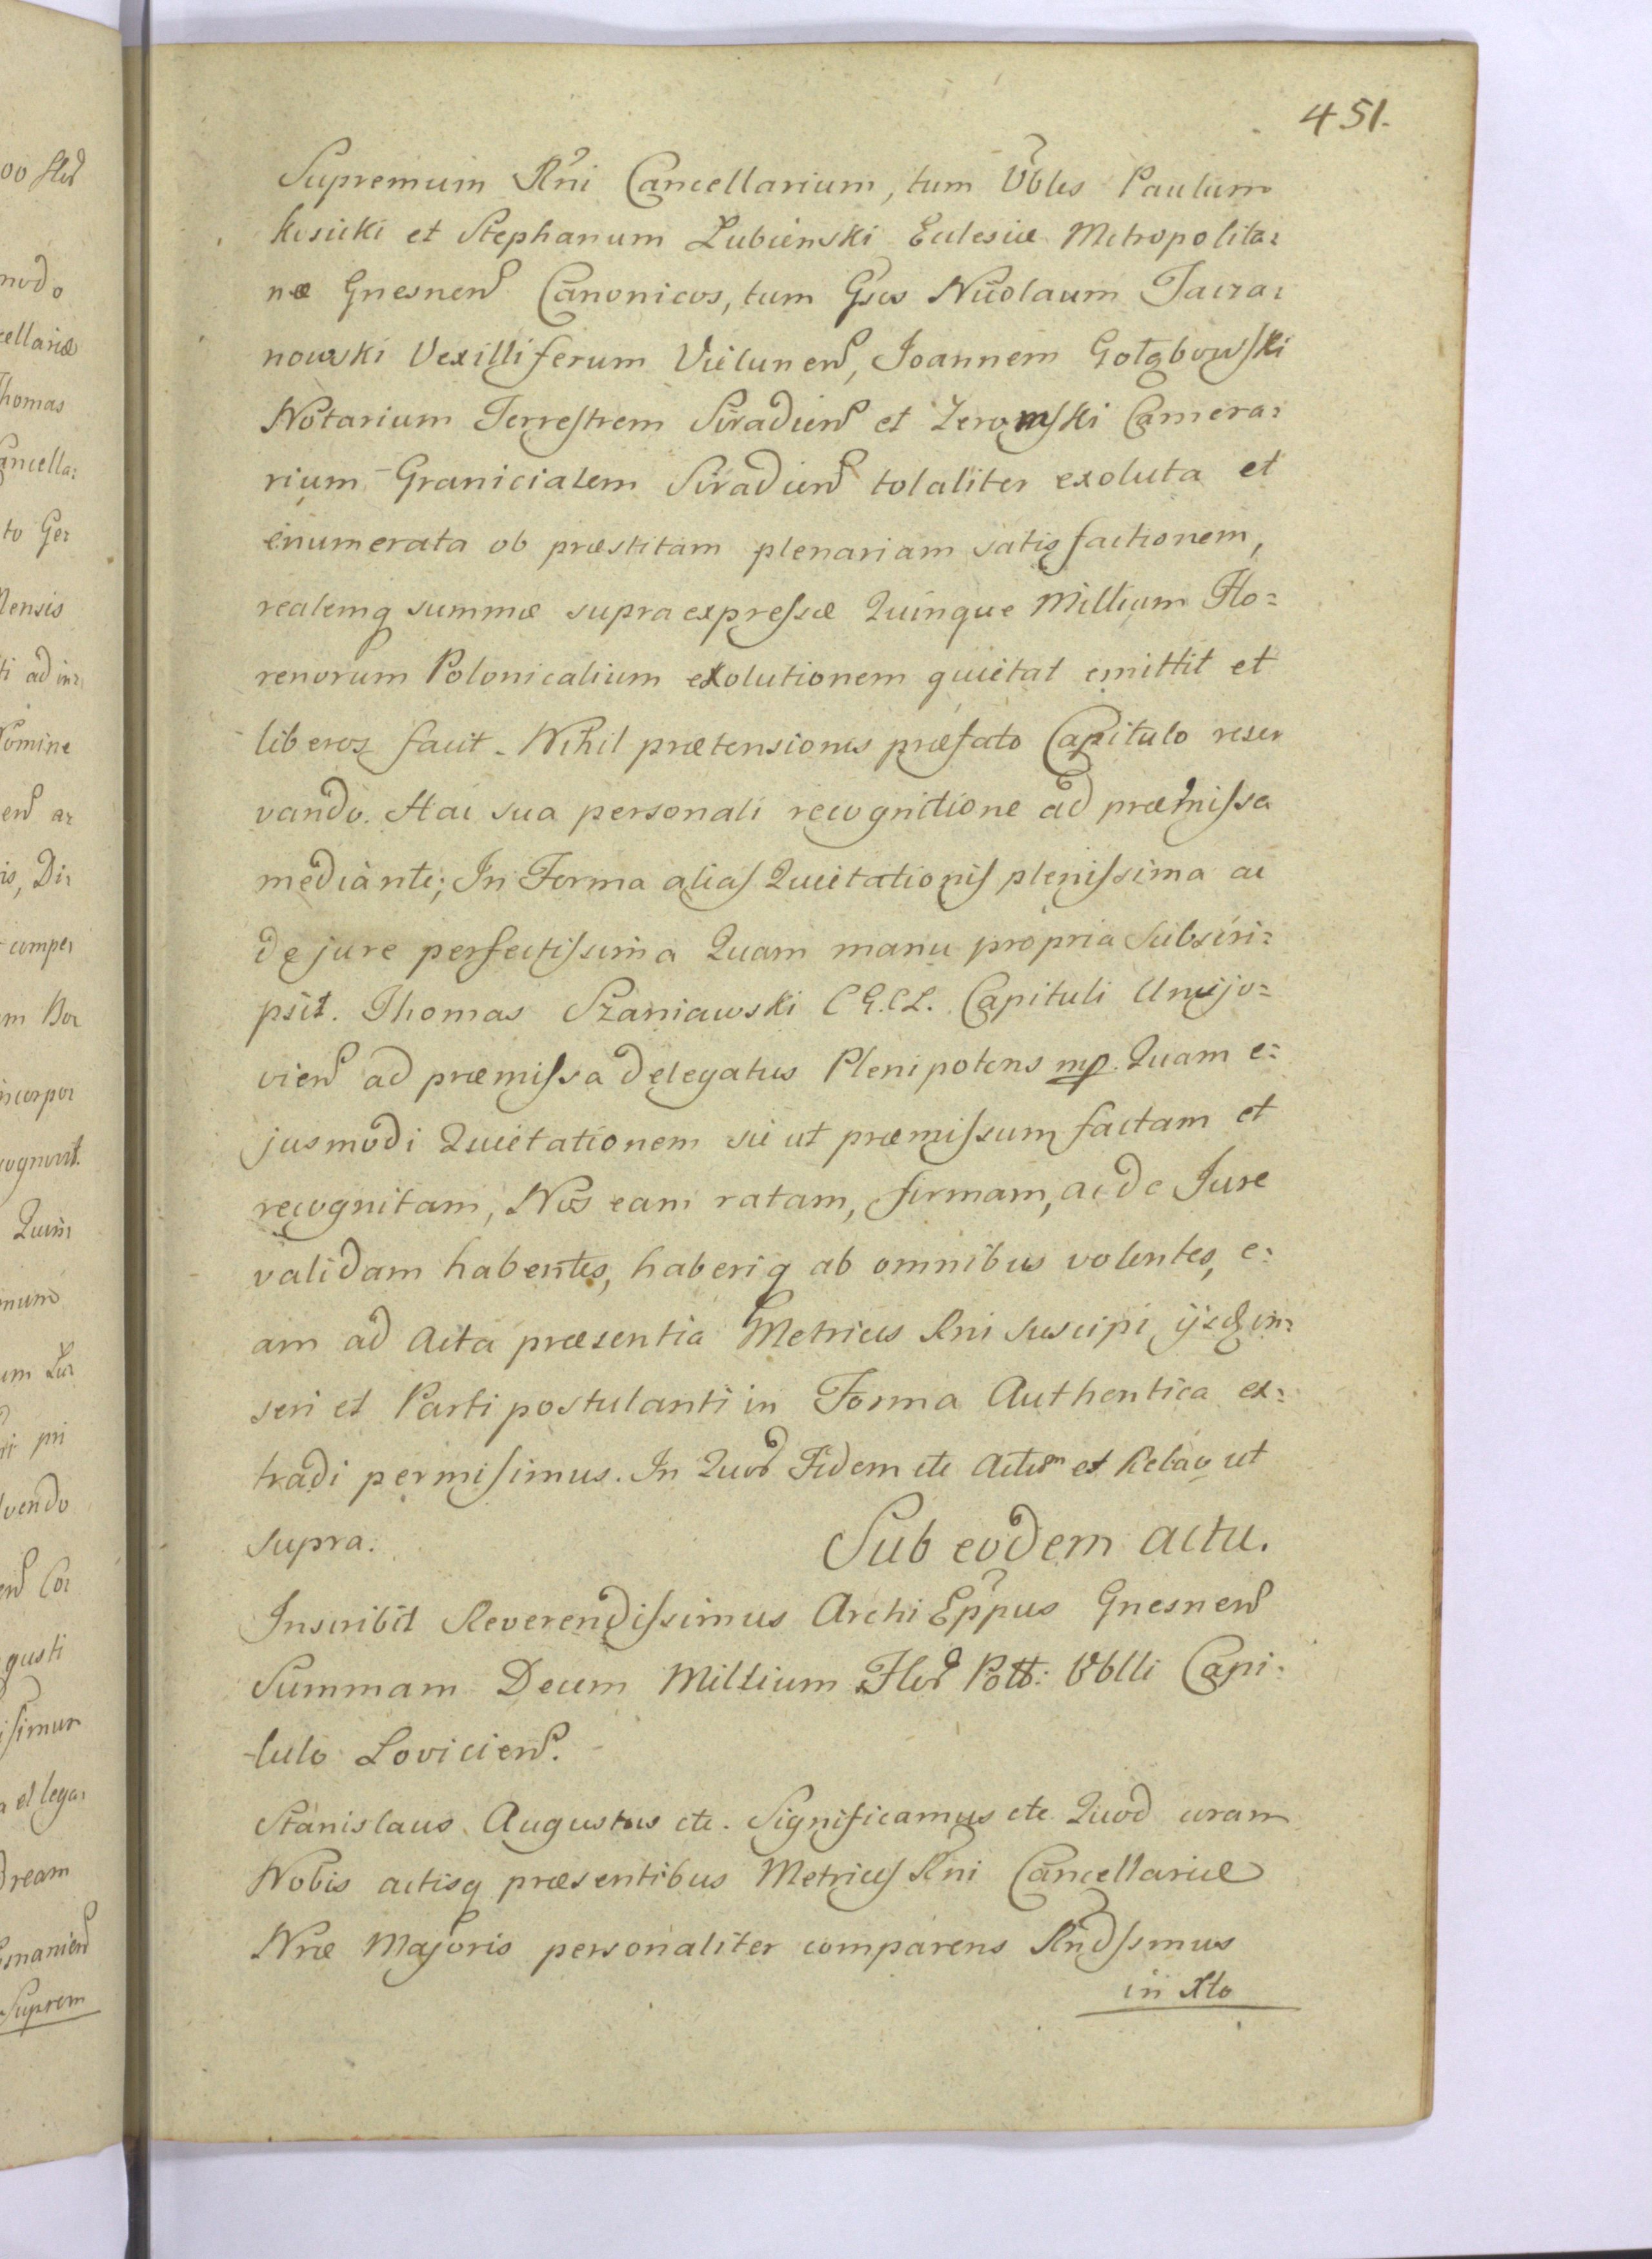 451.
Supremum Rni Cancellarium, tum Vbles Paulum
kosicki et Stephanum Lubienski Eclesiæ Metropolita:
næ Gnesnen Canonicos, tum Gsos Nicolaum Tacza:
nowski Vexilliferum Vielunen, Joannem Gołębowski
Notarium Terrestrem Siradien et Zeromski Camera:
rium Granicialem Siradien totaliter exoluta et
enumerata ob præstitam plenariam satisfactionem,
realemq summæ supraexpressæ Quinque Millium Flo=
renorum Polonicalium exolutionem quietat emittit et
liberos facit. Nihil prætensionis præfato Capitulo reser
vando. Hac sua personali recognitione ad præmissa
mediante; In Forma alias Quietationis plenissima ac
de jure perfectissima Quam manu propria Subscri=
psit. Thomas Szaniawski C G.C L. Capituli Uniejo=
vien ad præmissa delegatus Plenipotens mp. Quam e=
jusmodi Quietationem sic ut præmissum factam et
recognitam, Nos eam ratam, firmam, ac de Jure
validam habentes, haberiq ab omnibus volentes, e:
am ad Acta præsentia Metrices Rni suscipi ijsq in:
seri et Parti postulanti in Forma Authentica ex:
tradi permisimus. In Quor Fidem etc Actum et Relao ut
supra.
Sub eodem actu.
Inscribit Reverendissimus Archi Eppus Gnesnen
Summam Decem Millium Flor Poll: Vblli Capi:
tulo Lovicien.
Stanislaus Augustus etc. Significamus etc Quod coram
Nobis actisq præsentibus Metrices Rni Cancellariæ
Nræ Majoris personaliter comparens Rndssmus
in Xto
00 flor
modo
cellariæ
Thomas
Cancella:
to Ge:
ti ad in:
Nomine
en a:
is, Di:
compe:
incorpor
Quin
um
pri
vendo
en Co:
gusti
isimus
a et lega:
ream
snanien
Suprem